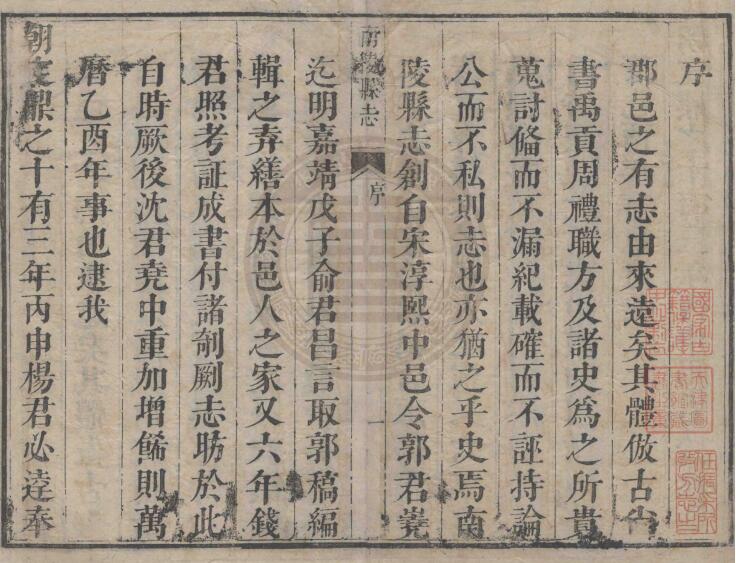 序
郡邑之有志由來遠矣其體倣古尚
書禹貢周禮職方及諸史為之所貴
蒐討備而不漏紀載確而不誣持論
公而不私則志也亦猶之乎史焉南
陵縣志創自宋淳熙中邑令郭君嶤
南陵縣志
序
一
迄明嘉靖戊子俞君昌言取郭稿編
輯之弆繕本於邑人之家又六年錢
君照考証成書付諸剞劂志昉於此
自時厥後沈君堯中重加增餙則萬
曆乙酉年事也逮我
朝定鼎之十有三年丙申楊君必達奉